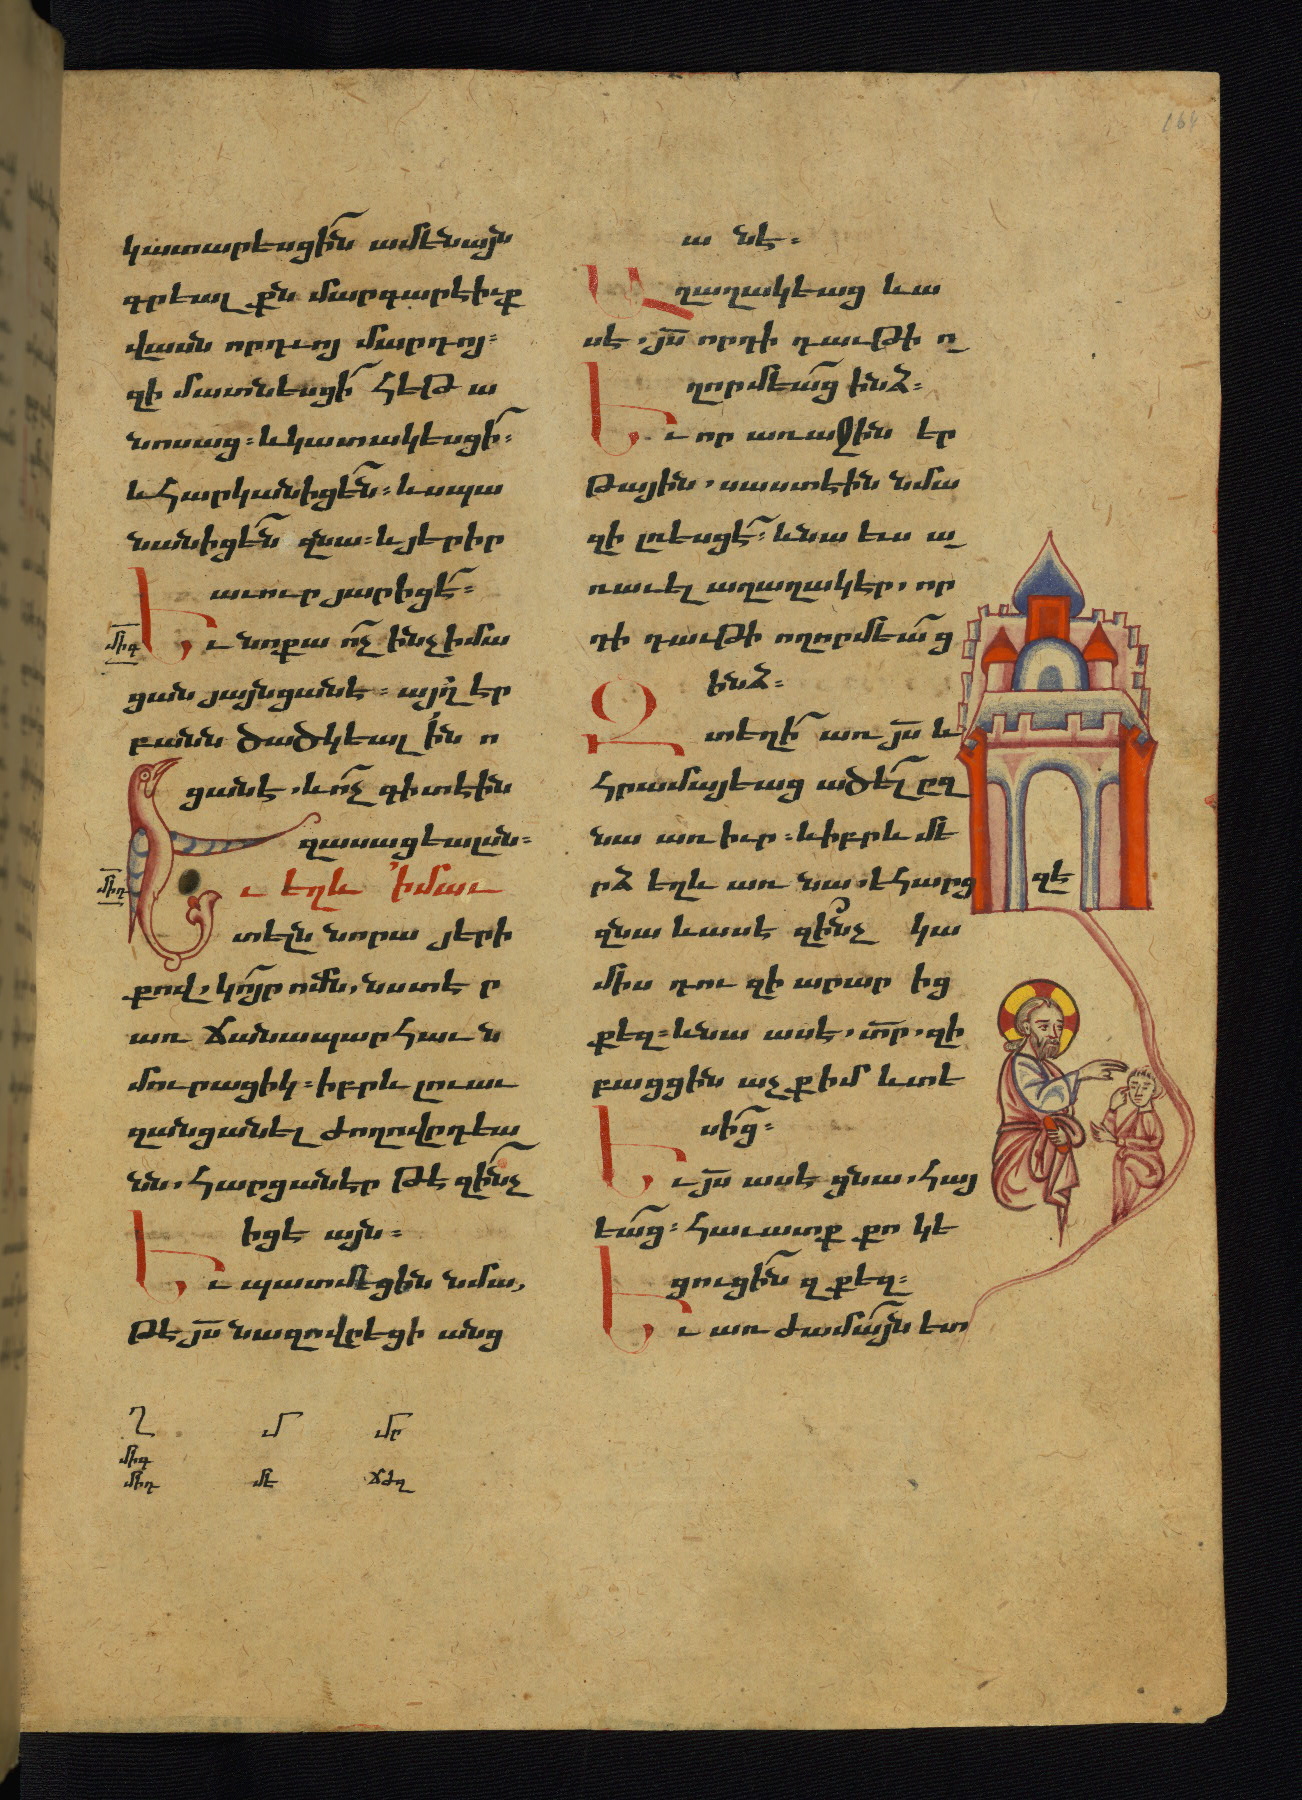 կատարեսցին ամենայն
գրեալ քն մարգարէիւք
վասն որդւոյ մարդոյ։
զի մատնեսցի հեթա
նոսաց։ և կատակեսցի։
և հարկանիցեն։ և սպա
նանիցեն զնա։ և յերիր
աւուր յարիցէ։
Եւ նոքա ոչ ինչ իմա
ցան յայնցանէ։ այղ էր
բանն ծածկեալ ին ո
ցանէ, և ոչ գիտէին
զասացեալսն։
Եւ եղև ՚ի մաւ
տելն նորա յերի
քով, կոյր ոմն, նստէր
առ ճանապարհաւն
մուրացիկ։ իբրև լուաւ
զանցանել ժողովրդեա
նն, հարցանէր թէ զինչ
իցէ այն։
Եւ պատմեցին նմա,
թէ յս նազովրեցի անց
միգ
միդ
Ղ մ մը
միգ
միդ մէ ճժղ
անէ։
Աղաղակեաց և ա
սէ, յս որդի դաւթի ո
ղորմեաց ինձ։
Եւ որ առաջին էր
թային, սաստէին նմա
զի լռեսցէ։ և նա ևս ա
ռաւել աղաղակէր, որ
դի դաւթի ողորմեաց
ինձ։
Զտեղի առ յս և
հրամայեաց ածել ըզ
նա առ իւր։ և իբրև մե
րձ եղև առ նա, էհարց
զնա և ասէ զինչ կա
միս դու զի արարից
քեզ։ և նա ասէ, տր, զի
բացցին աչք իմ և տե
սից։
Եւ յս ասէ ցնա, հայ
եաց։ հաւատք քո կե
ցուցին զքեզ։
Եւ առ ժամայն ետ
զե